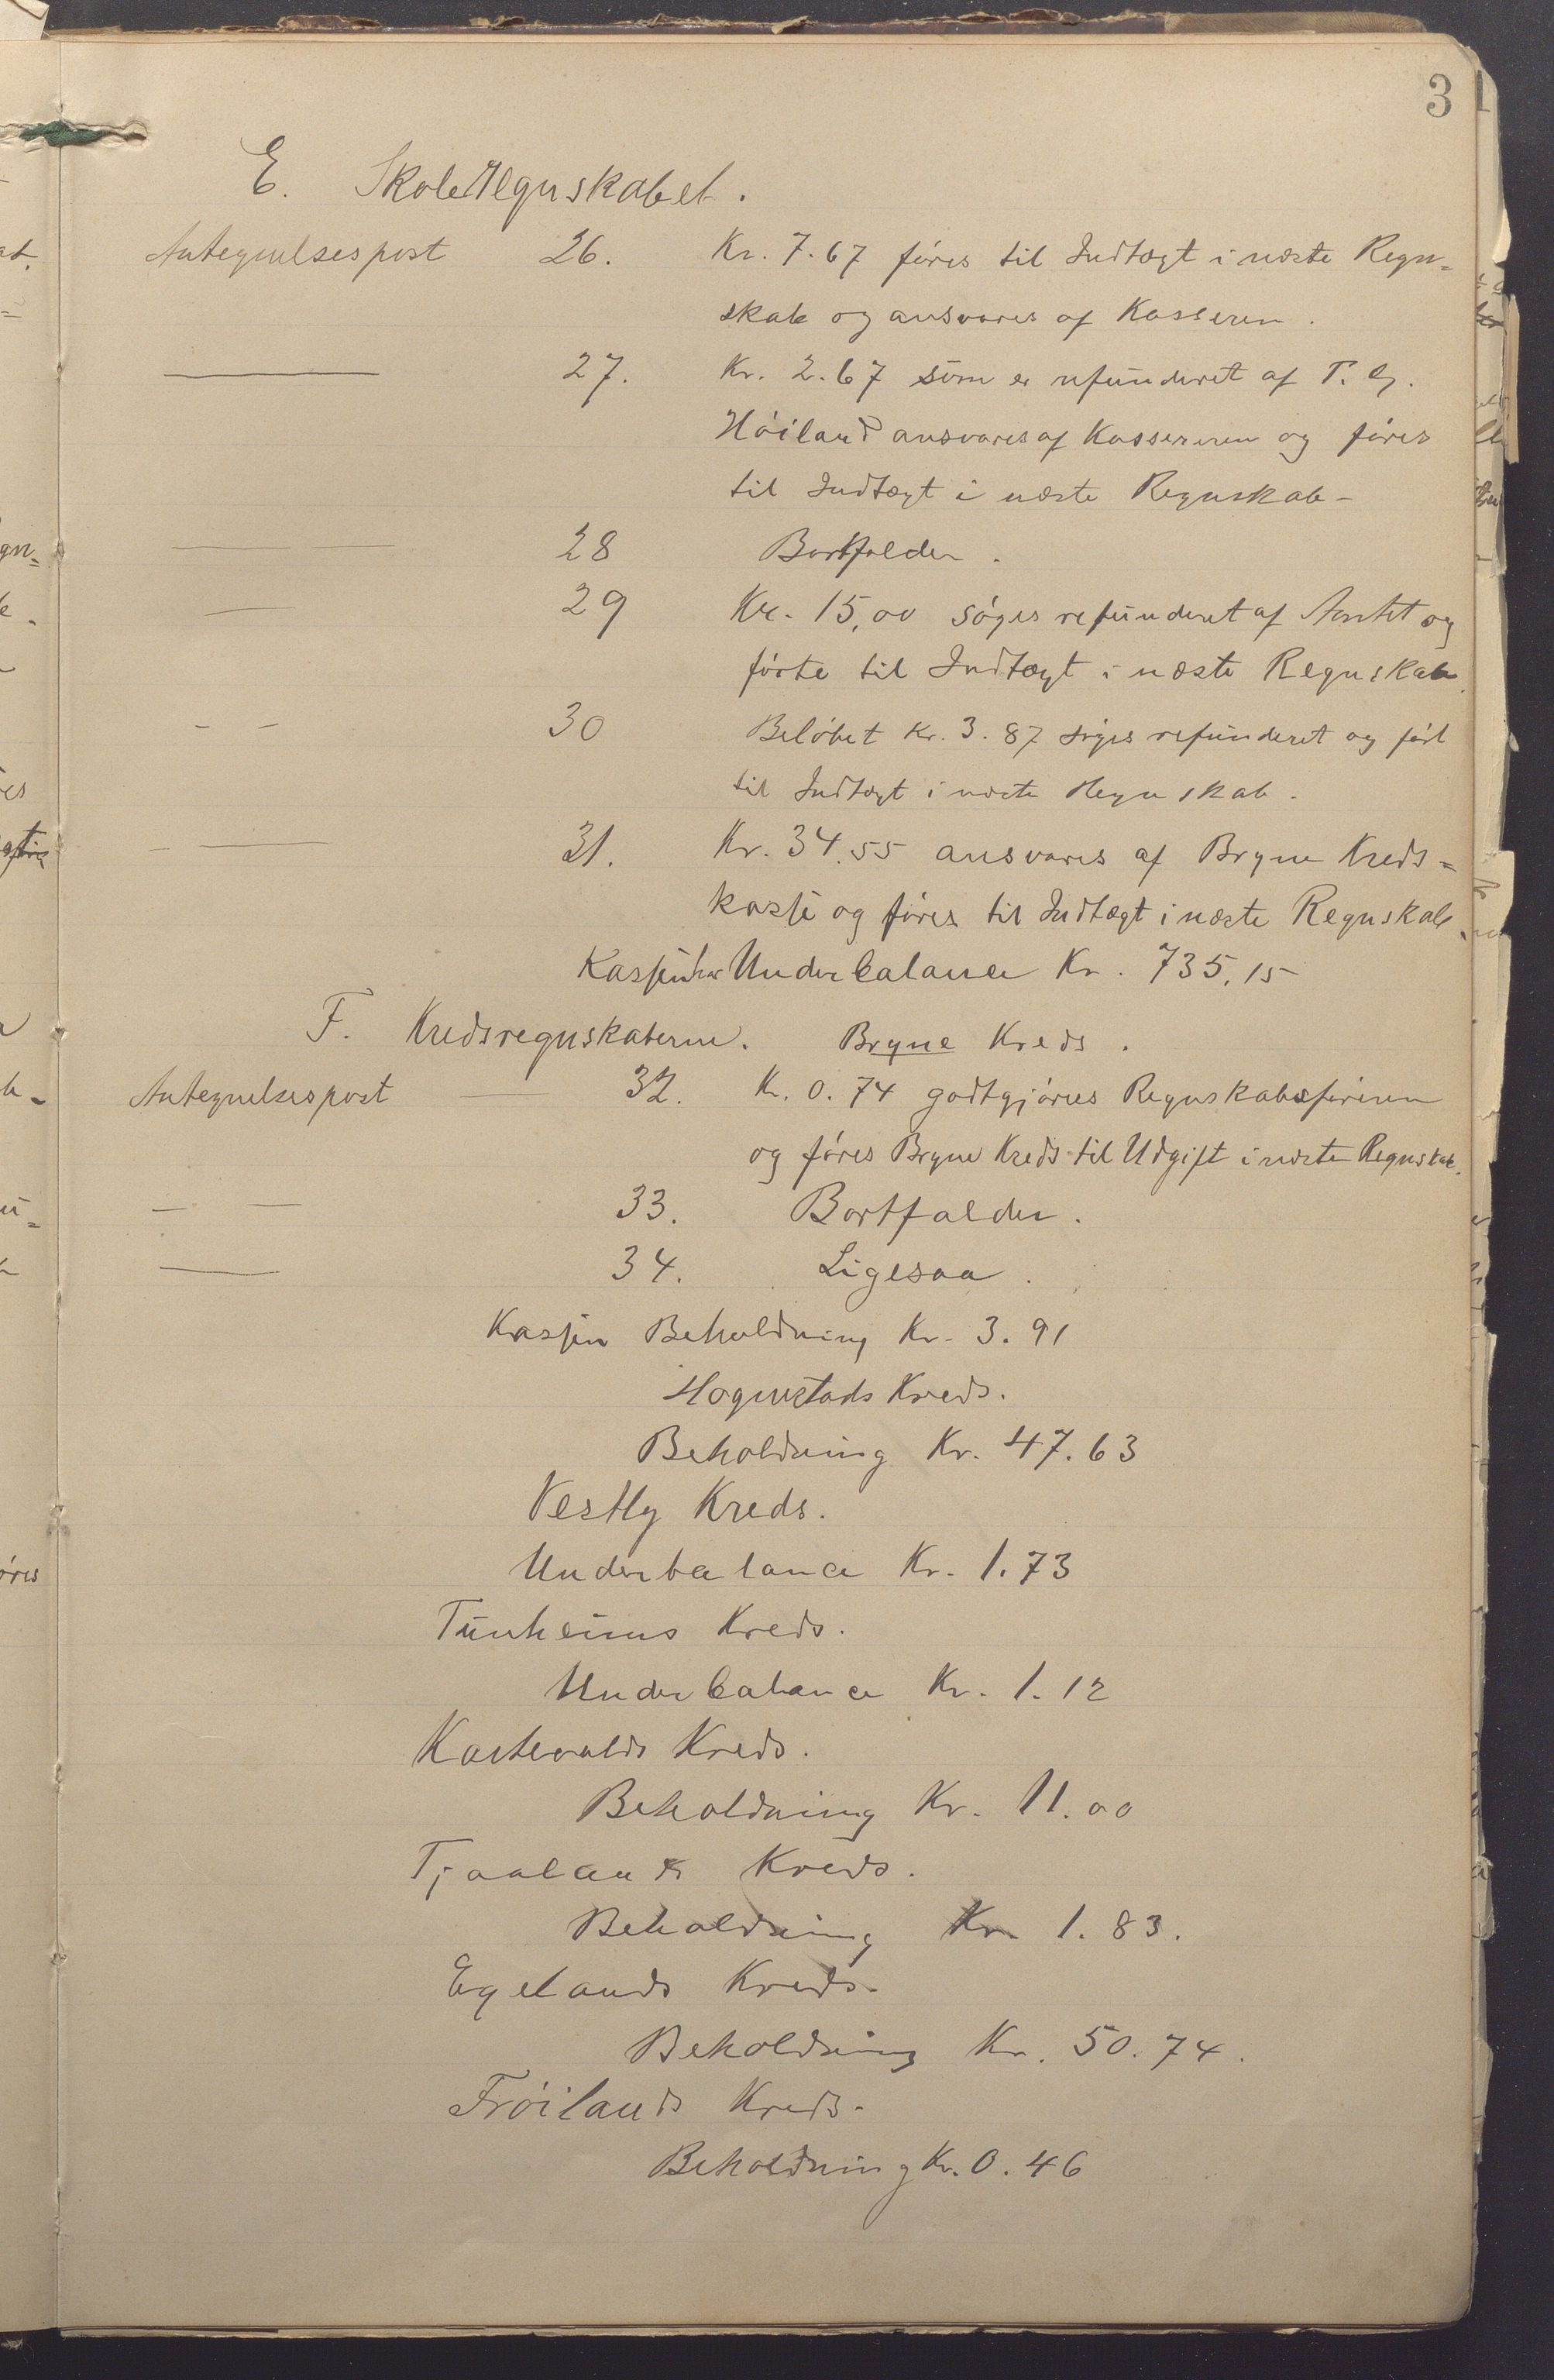 3
E. Skoleregnskabet.
Antegnelsespost 26. Kr. 7.67 føres til Indtægt i næste Regn=
skab og ansvares af Kasseren.
27. Kr. 2.67 som er refunderet af T. G.
Høiland ansvares af Kassereren og føres
til Indtægt i næste Regnskab -
28 Bortfalder.
29 Kr. 15,00 søges refunderet af Amtet og
førte til Indtægt i næste Regnskab.
30 Beløbet Kr. 3.87 søges refunderet og ført
til Indtægt i næste Regnskab.
31. Kr. 34.55 ansvares af Bryne Kreds=
kasse og føres til Indtægt i næste Regnskab.
Kassen har Underbalance Kr. 735,15
F. Kredsregnskaberne. Bryne Kreds.
Antegnelsespost 32. Kr. 0.74 godtgjøres Regnskabsføreren
og føres Bryne Kreds til Udgift i næste Regnskab.
33. Bortfalder.
34. Ligesaa.
Kassen Beholdning Kr. 3.91
Hognestads Kreds.
Beholdning Kr. 47.63
Vestly Kreds.
Underbalance Kr. 1.73
Tunheims Kreds.
Underbalance Kr. 1.12
Kartevolds Kreds.
Beholdning Kr. 11.00
Tjaalands Kreds.
Beholdning Kr. 1.83.
Egelands Kreds.
Beholdning Kr. 50.74.
Frøilands Kreds.
Beholdning Kr. 0.46